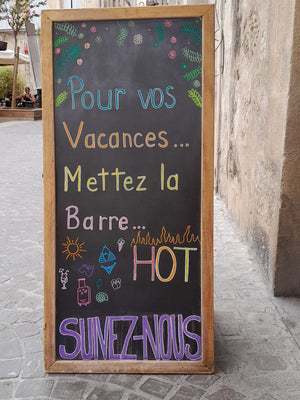 Pour vos
Vacances...
Mettez la
Barre...
HOT
SUIVEZ-NOUS